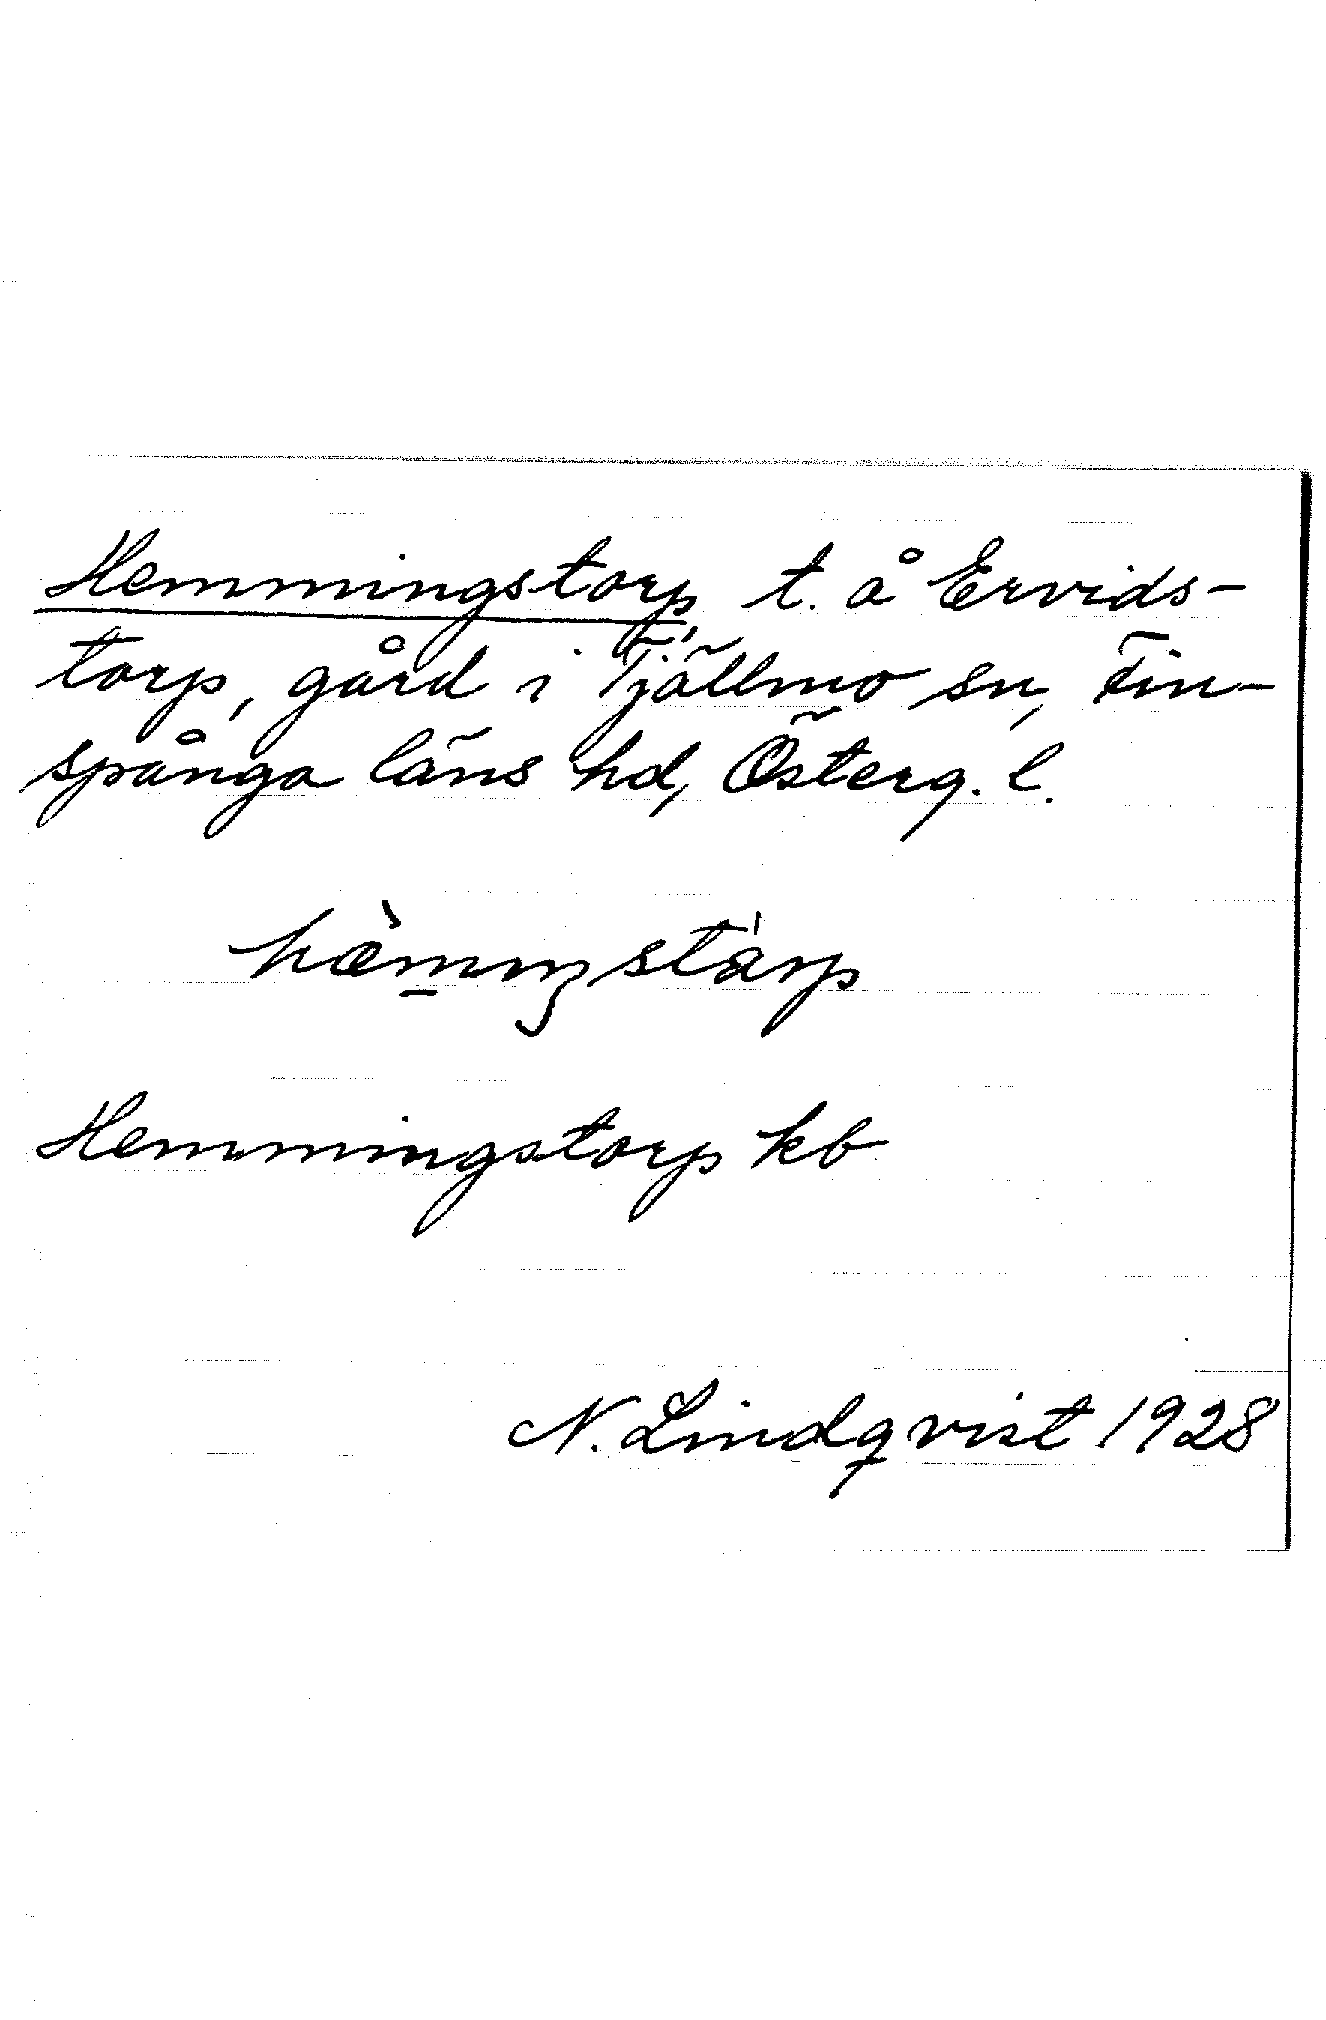 Hemmingstorp, t. å Ervids-
torp, gård i Tjällmo sn, Fin-
spånga läns hd, Österg. l.
Hemmingstorp kb
N. Lindqvist 1928